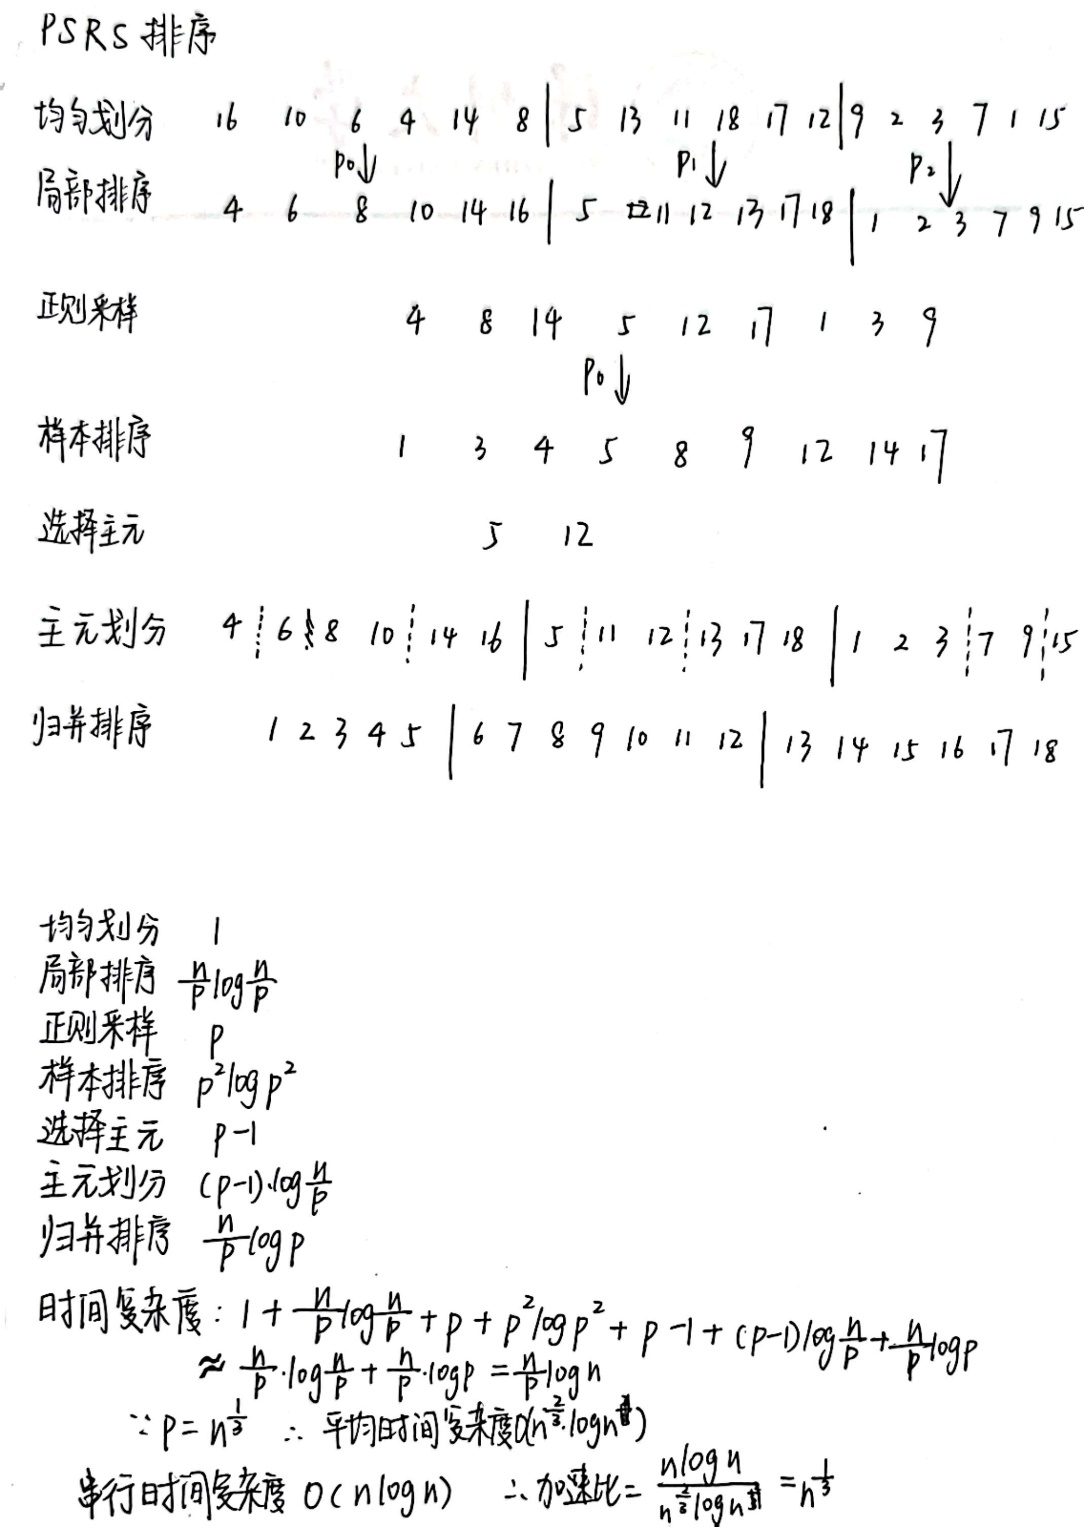 PSRS 排序
均匀划分 16 10 6 4 14 8 | 5 13 11 18 17 12 | 9 2 3 7 1 15
P₀↓ P₁↓ P₂↓
局部排序 4 6 8 10 14 16 | 5 11 12 13 17 18 | 1 2 3 7 9 15
正则采样 4 8 14 5 12 17 1 3 9
P₀↓
样本排序 1 3 4 5 8 9 12 14 17
选择主元 5 12
主元划分 4 ┊ 6 8 10 ┊ 14 16 | 5 ┊ 11 12 ┊ 13 17 18 | 1 2 3 ┊ 7 9 ┊ 15
归并排序 1 2 3 4 5 | 6 7 8 9 10 11 12 | 13 14 15 16 17 18
均匀划分 1
局部排序 n/p log n/p
正则采样 p
样本排序 p² log p²
选择主元 p-1
主元划分 (p-1)·log n/p
归并排序 n/p log p
时间复杂度: 1 + n/p log n/p + p + p² log p² + p-1 + (p-1) log n/p + n/p log p
≈ n/p · log n/p + n/p · log p = n/p log n
∵ p = n^(1/3) ∴ 平均时间复杂度O(n^(2/3)·log n)
串行时间复杂度 O(n log n) ∴ 加速比 = n log n / n^(2/3) log n = n^(1/3)